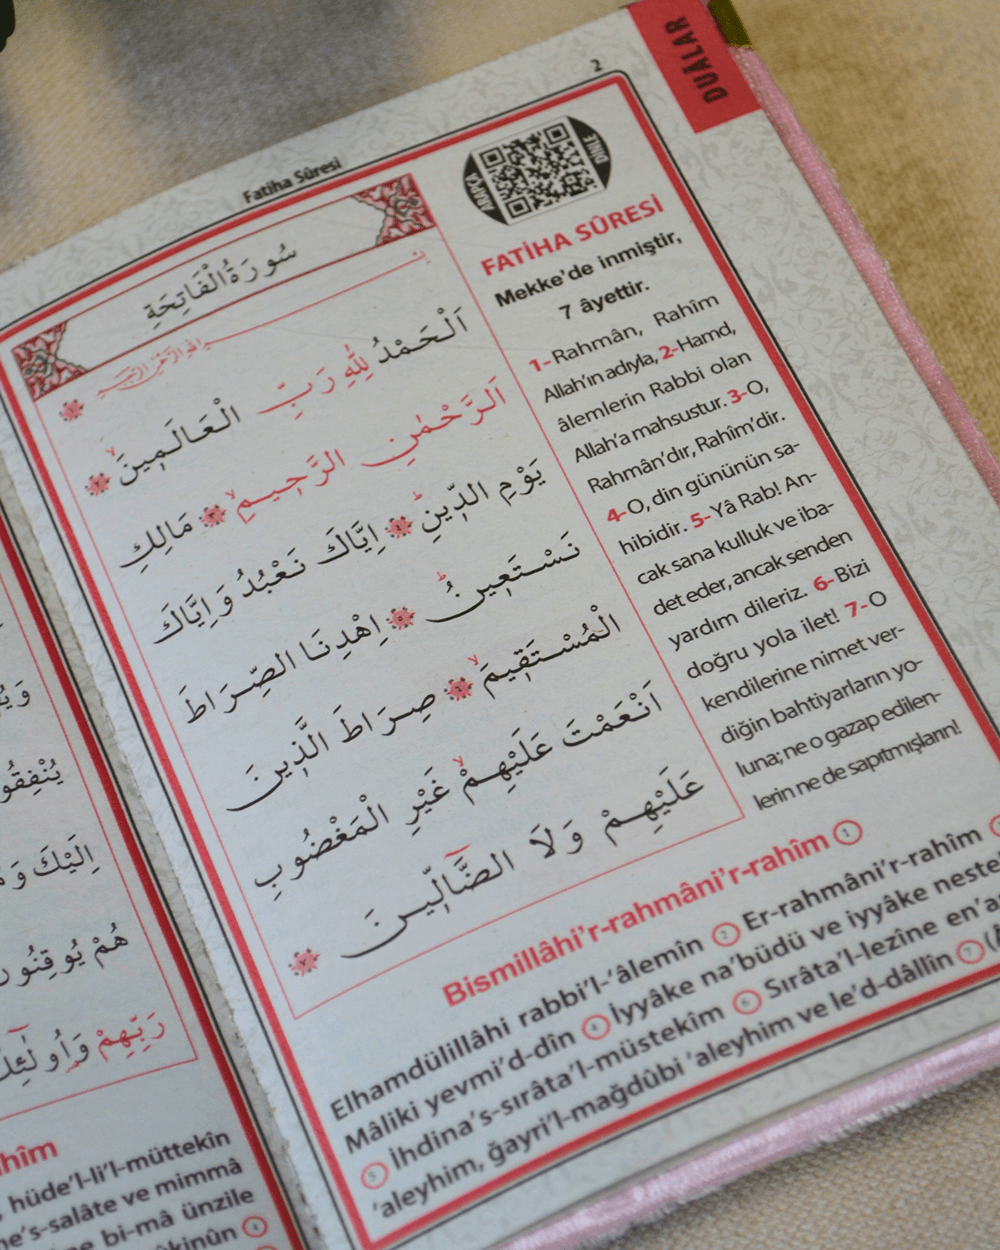 DUÂLAR
2
Fatiha Sûresi
سُورَةُ الْفَاتِحَةِ
اَلْحَمْدُ لِلّٰهِ رَبِّ الْعَالَمِينَۙ
اَلرَّحْمٰنِ الرَّحِيمِۙ ﴿٣﴾ مَالِكِ
يَوْمِ الدِّينِۜ ﴿٤﴾ اِيَّاكَ نَعْبُدُ وَاِيَّاكَ
نَسْتَعِينُۜ ﴿٥﴾ اِهْدِنَا الصِّرَاطَ
الْمُسْتَقِيمَۙ ﴿٦﴾ صِرَاطَ الَّذِينَ
اَنْعَمْتَ عَلَيْهِمْۙ غَيْرِ الْمَغْضُوبِ
عَلَيْهِمْ وَلَا الضَّٓالِّينَ ﴿٧﴾
ARAPÇA
DİNLE
FATİHA SÛRESİ
Mekke'de inmiştir,
7 âyettir.
1- Rahmân, Rahîm
Allah'ın adıyla, 2- Hamd,
âlemlerin Rabbi olan
Allah'a mahsustur. 3- O,
Rahmân'dır, Rahîm'dir.
4- O, din gününün sa-
hibidir. 5- Yâ Rab! An-
cak sana kulluk ve iba-
det eder, ancak senden
yardım dileriz. 6- Bizi
doğru yola ilet! 7- O
kendilerine nimet ver-
diğin bahtiyarların yo-
luna; ne o gazap edilen-
lerin ne de sapıtmışların!
Bismillâhi'r-rahmâni'r-rahîm 1
Elhamdülillâhi rabbi'l-'âlemîn 2 Er-rahmâni'r-rahîm
Mâliki yevmi'd-dîn 4 İyyâke na'büdü ve iyyâke neste
5 İhdina's-sırâta'l-müstekîm 6 Sırâta'l-lezîne en'a
'aleyhim, ğayri'l-mağdûbi 'aleyhim ve le'd-dâllîn 7
يُنْفِقُو
اِلَيْكَ وَ
هُمْ يُوقِنُون
رَبِّهِمْ وَاُولٰٓئِكَ
hîm
hüde'l-li'l-müttekîn
ne's-salâte ve mimmâ
ne bi-mâ ünzile
kinûn 4